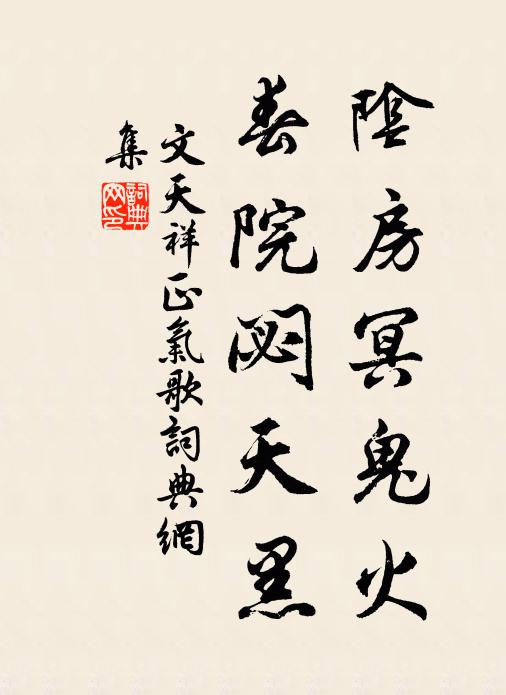 陰房冥鬼火
春院閟天黑
文天祥正氣歌詞典網
集
詞典網印